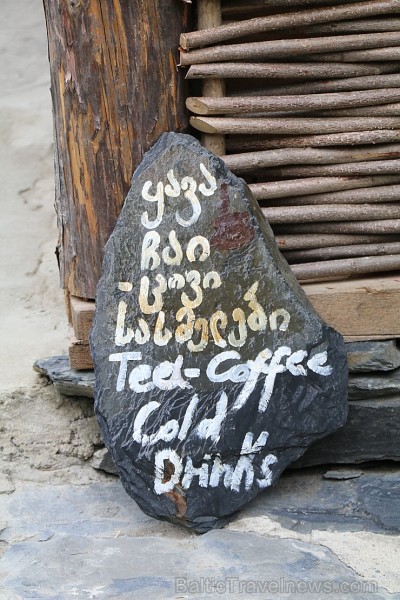 ყავა
ჩაი
ცივი
სასმელები
Tea-Coffee
Cold
Drinks
BalticTravelnews.com